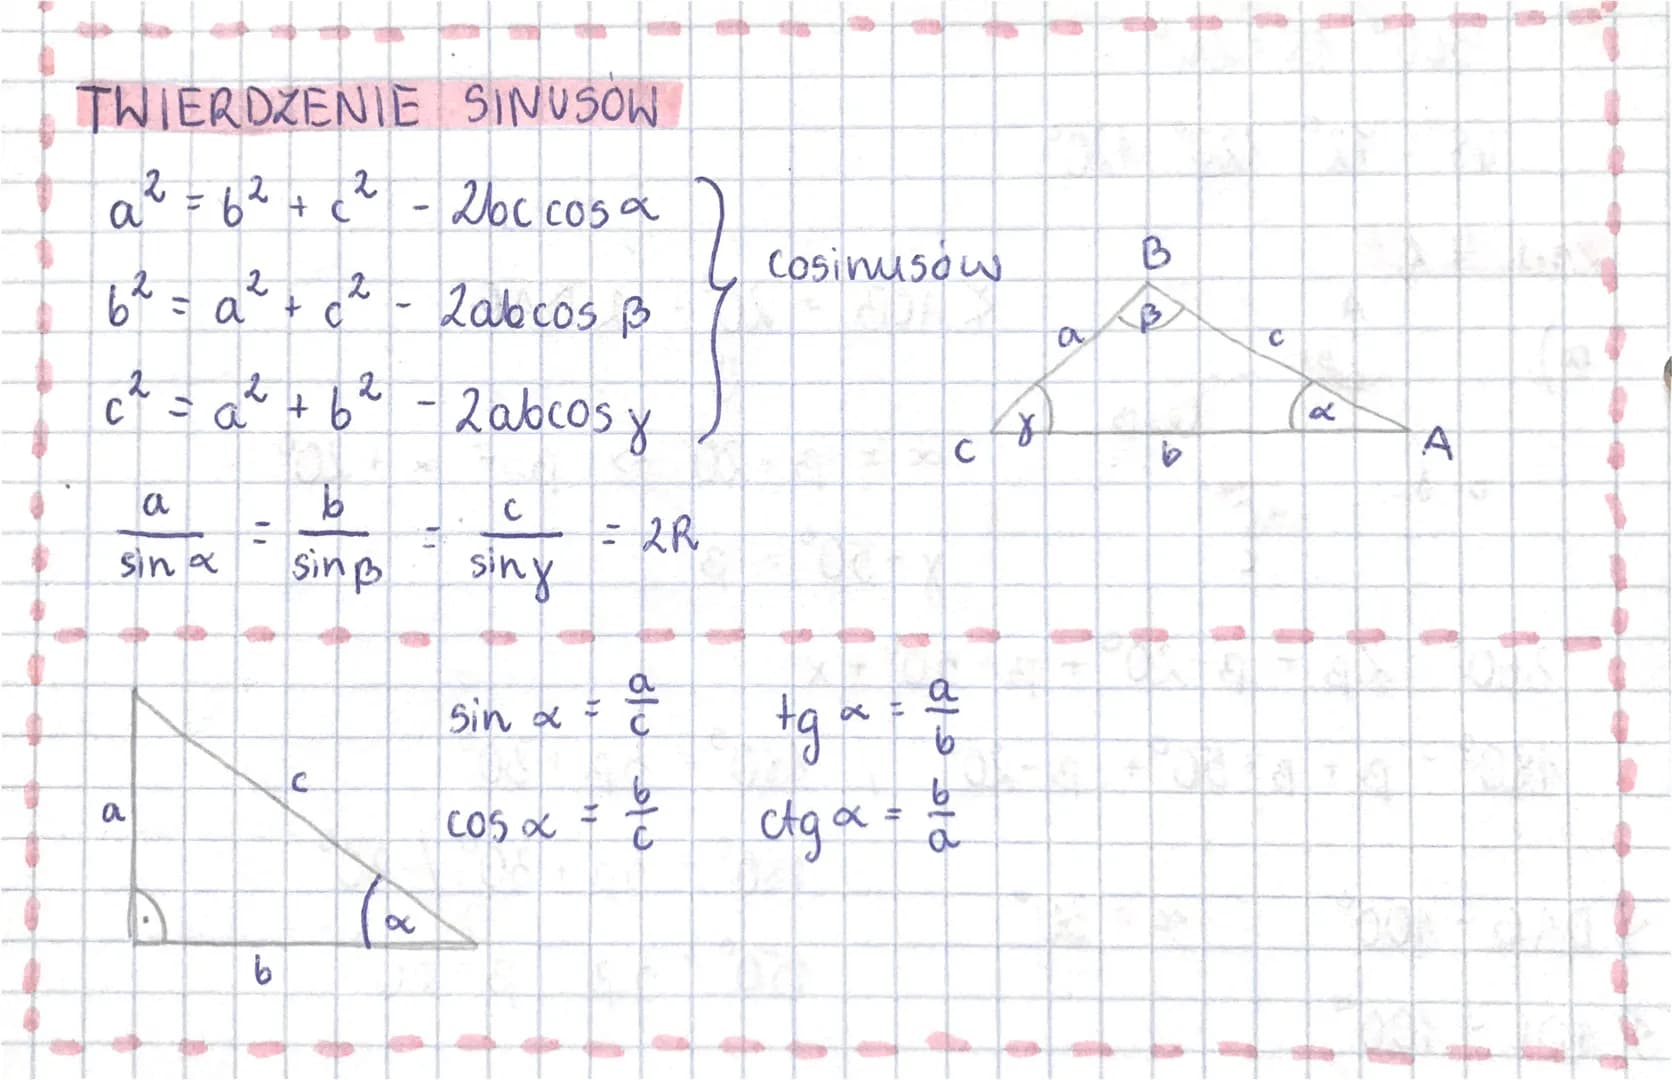 TWIERDZENIE SINUSÓW
a² = b² + c² - 2bc cos α
b² = a² + c² - 2abcos β
c² = a² + b² - 2abcos γ
cosinusów
B
β
a
c
γ
α
C
b
A
a/sin α = b/sin β = c/sin γ = 2R
sin α = a/c
tg α = a/b
cos α = b/c
ctg α = b/a
c
a
α
b